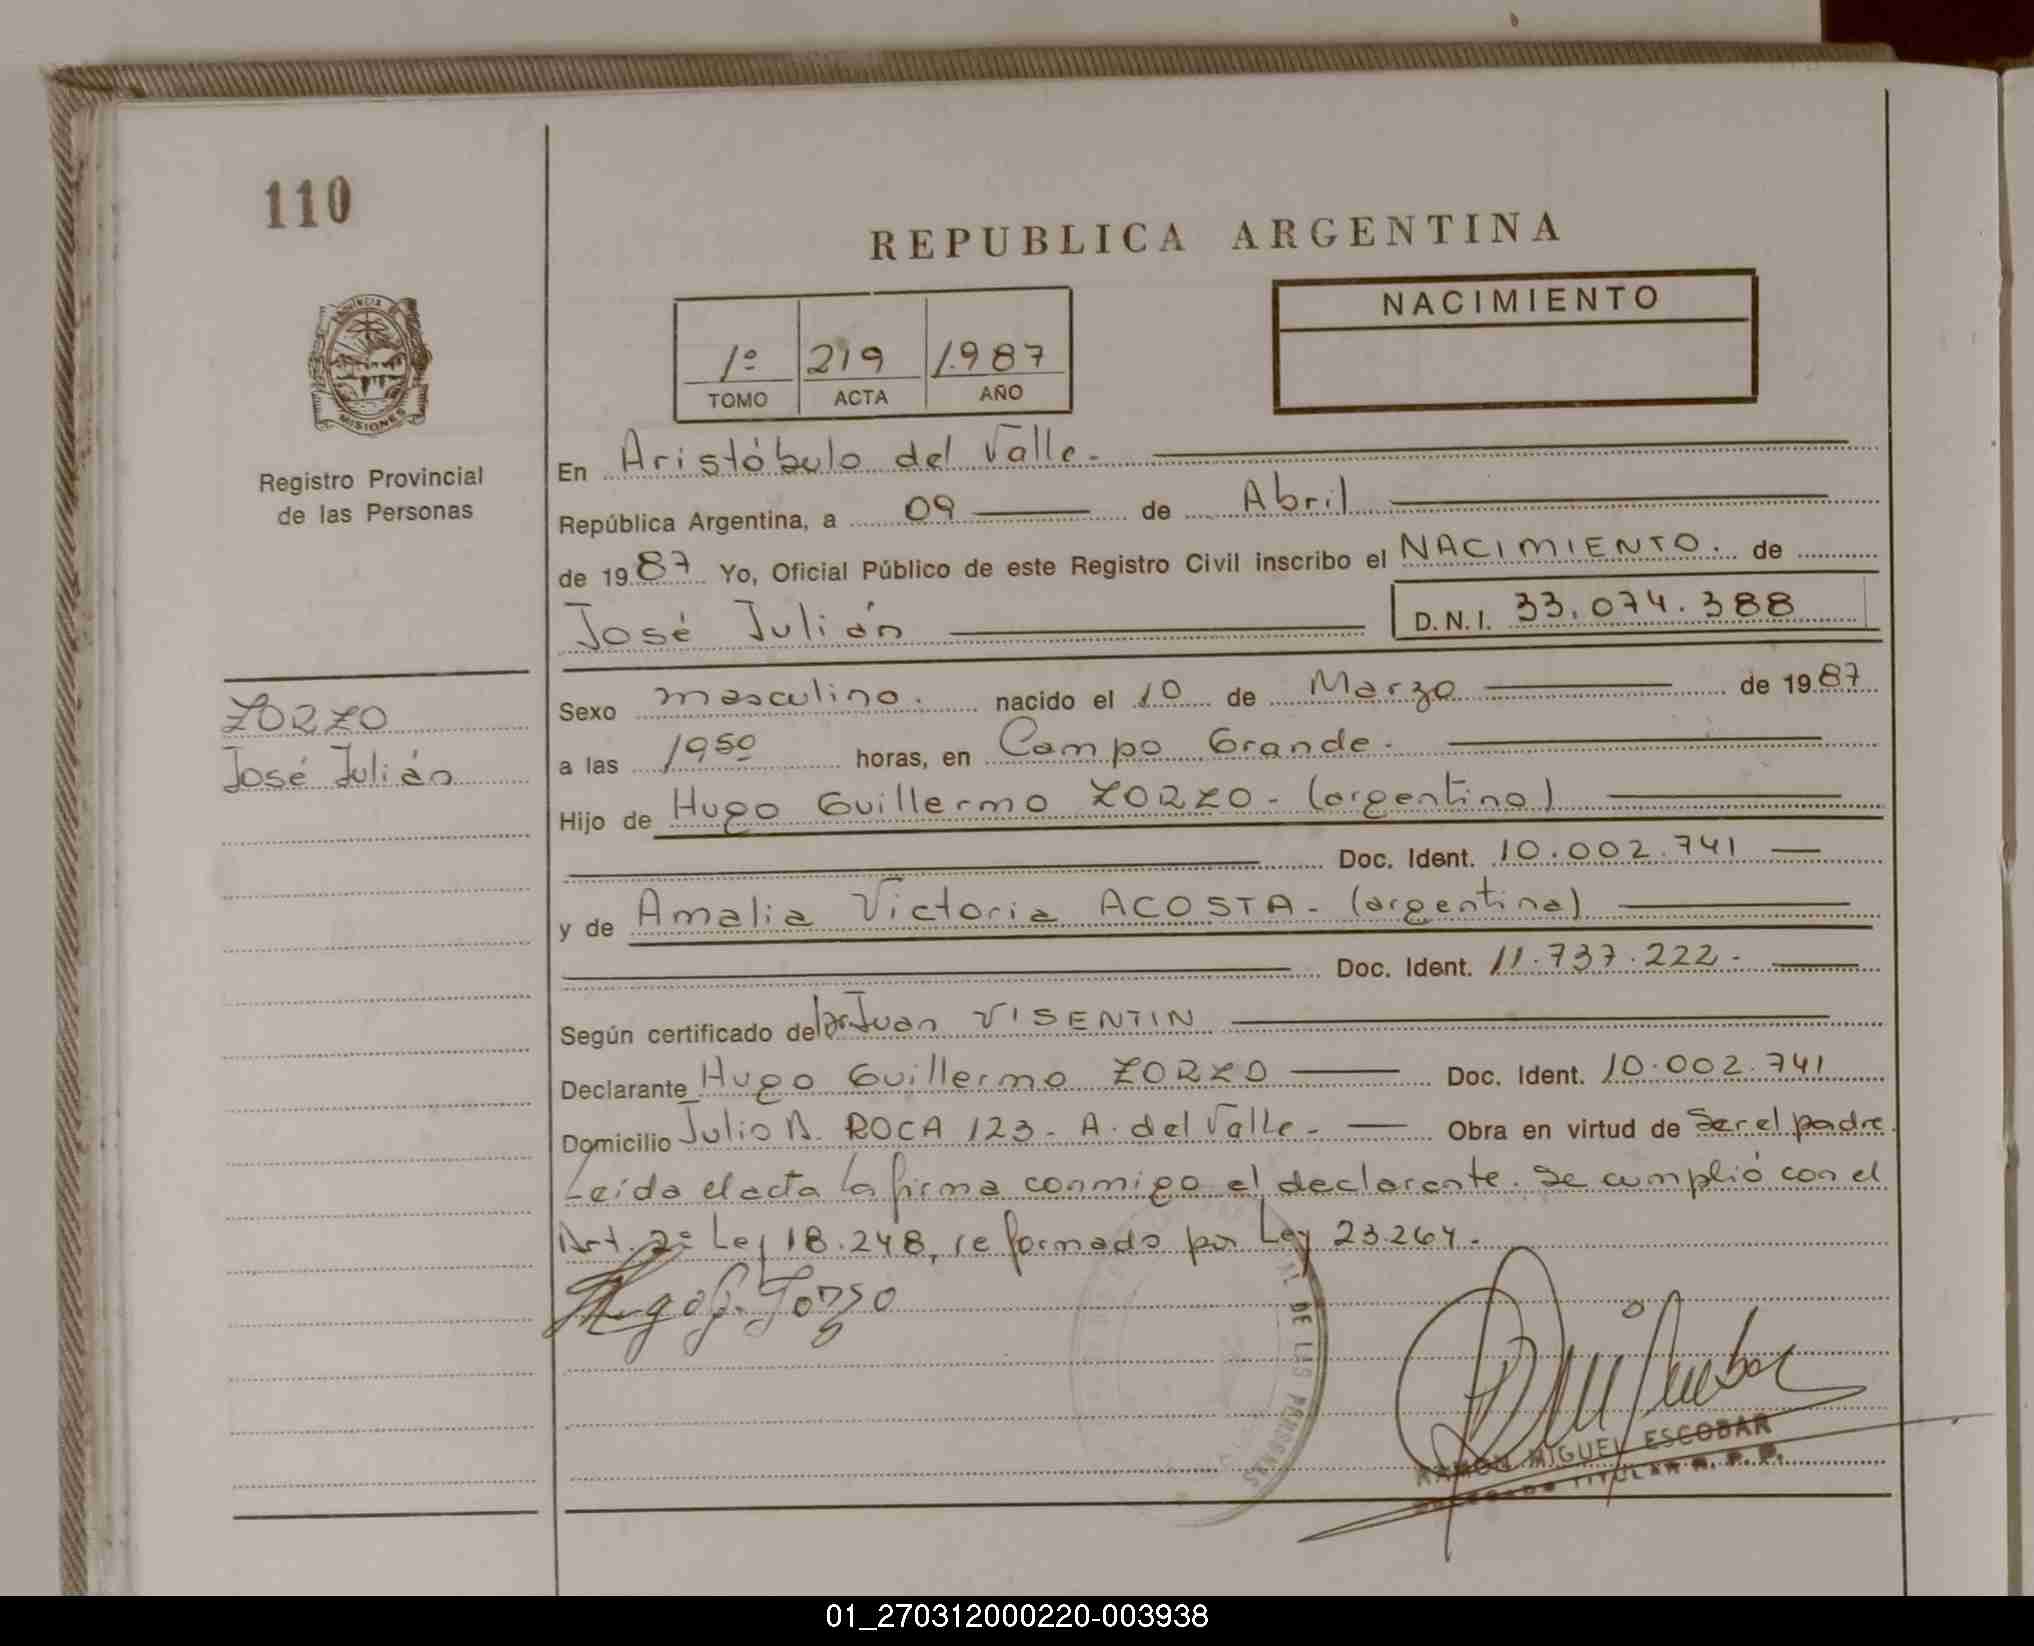 110
REPUBLICA ARGENTINA
NACIMIENTO
1º 219 1.987
TOMO ACTA AÑO
PROVINCIA
MISIONES
Registro Provincial
de las Personas
ZORZO
José Julián
En Aristóbulo del Valle.-
República Argentina, a 09 de Abril
de 1987 Yo, Oficial Público de este Registro Civil inscribo el NACIMIENTO. de
José Julián D.N.I. 33.074.388
Sexo masculino. nacido el 10 de Marzo de 1987
a las 19 50 horas, en Campo Grande.-
Hijo de Hugo Guillermo ZORZO - (argentino)
Doc. Ident. 10.002.741
y de Amalia Victoria ACOSTA - (argentina)
Doc. Ident. 11.737.222.-
Según certificado del Dr Juan VISENTIN
Declarante Hugo Guillermo ZORZO Doc. Ident. 10.002.741
Domicilio Julio A. ROCA 123 - A. del Valle.- Obra en virtud de Ser el padre.
Leída el acta la firma conmigo el declarante. Se cumplió con el
Art. 2º Ley 18.248, reformado por Ley 23264.-
Hugo G. Zorzo
DE LAS PERSONAS
RAMON MIGUEL ESCOBAR
TITULAR R. P. P.
01_270312000220-003938